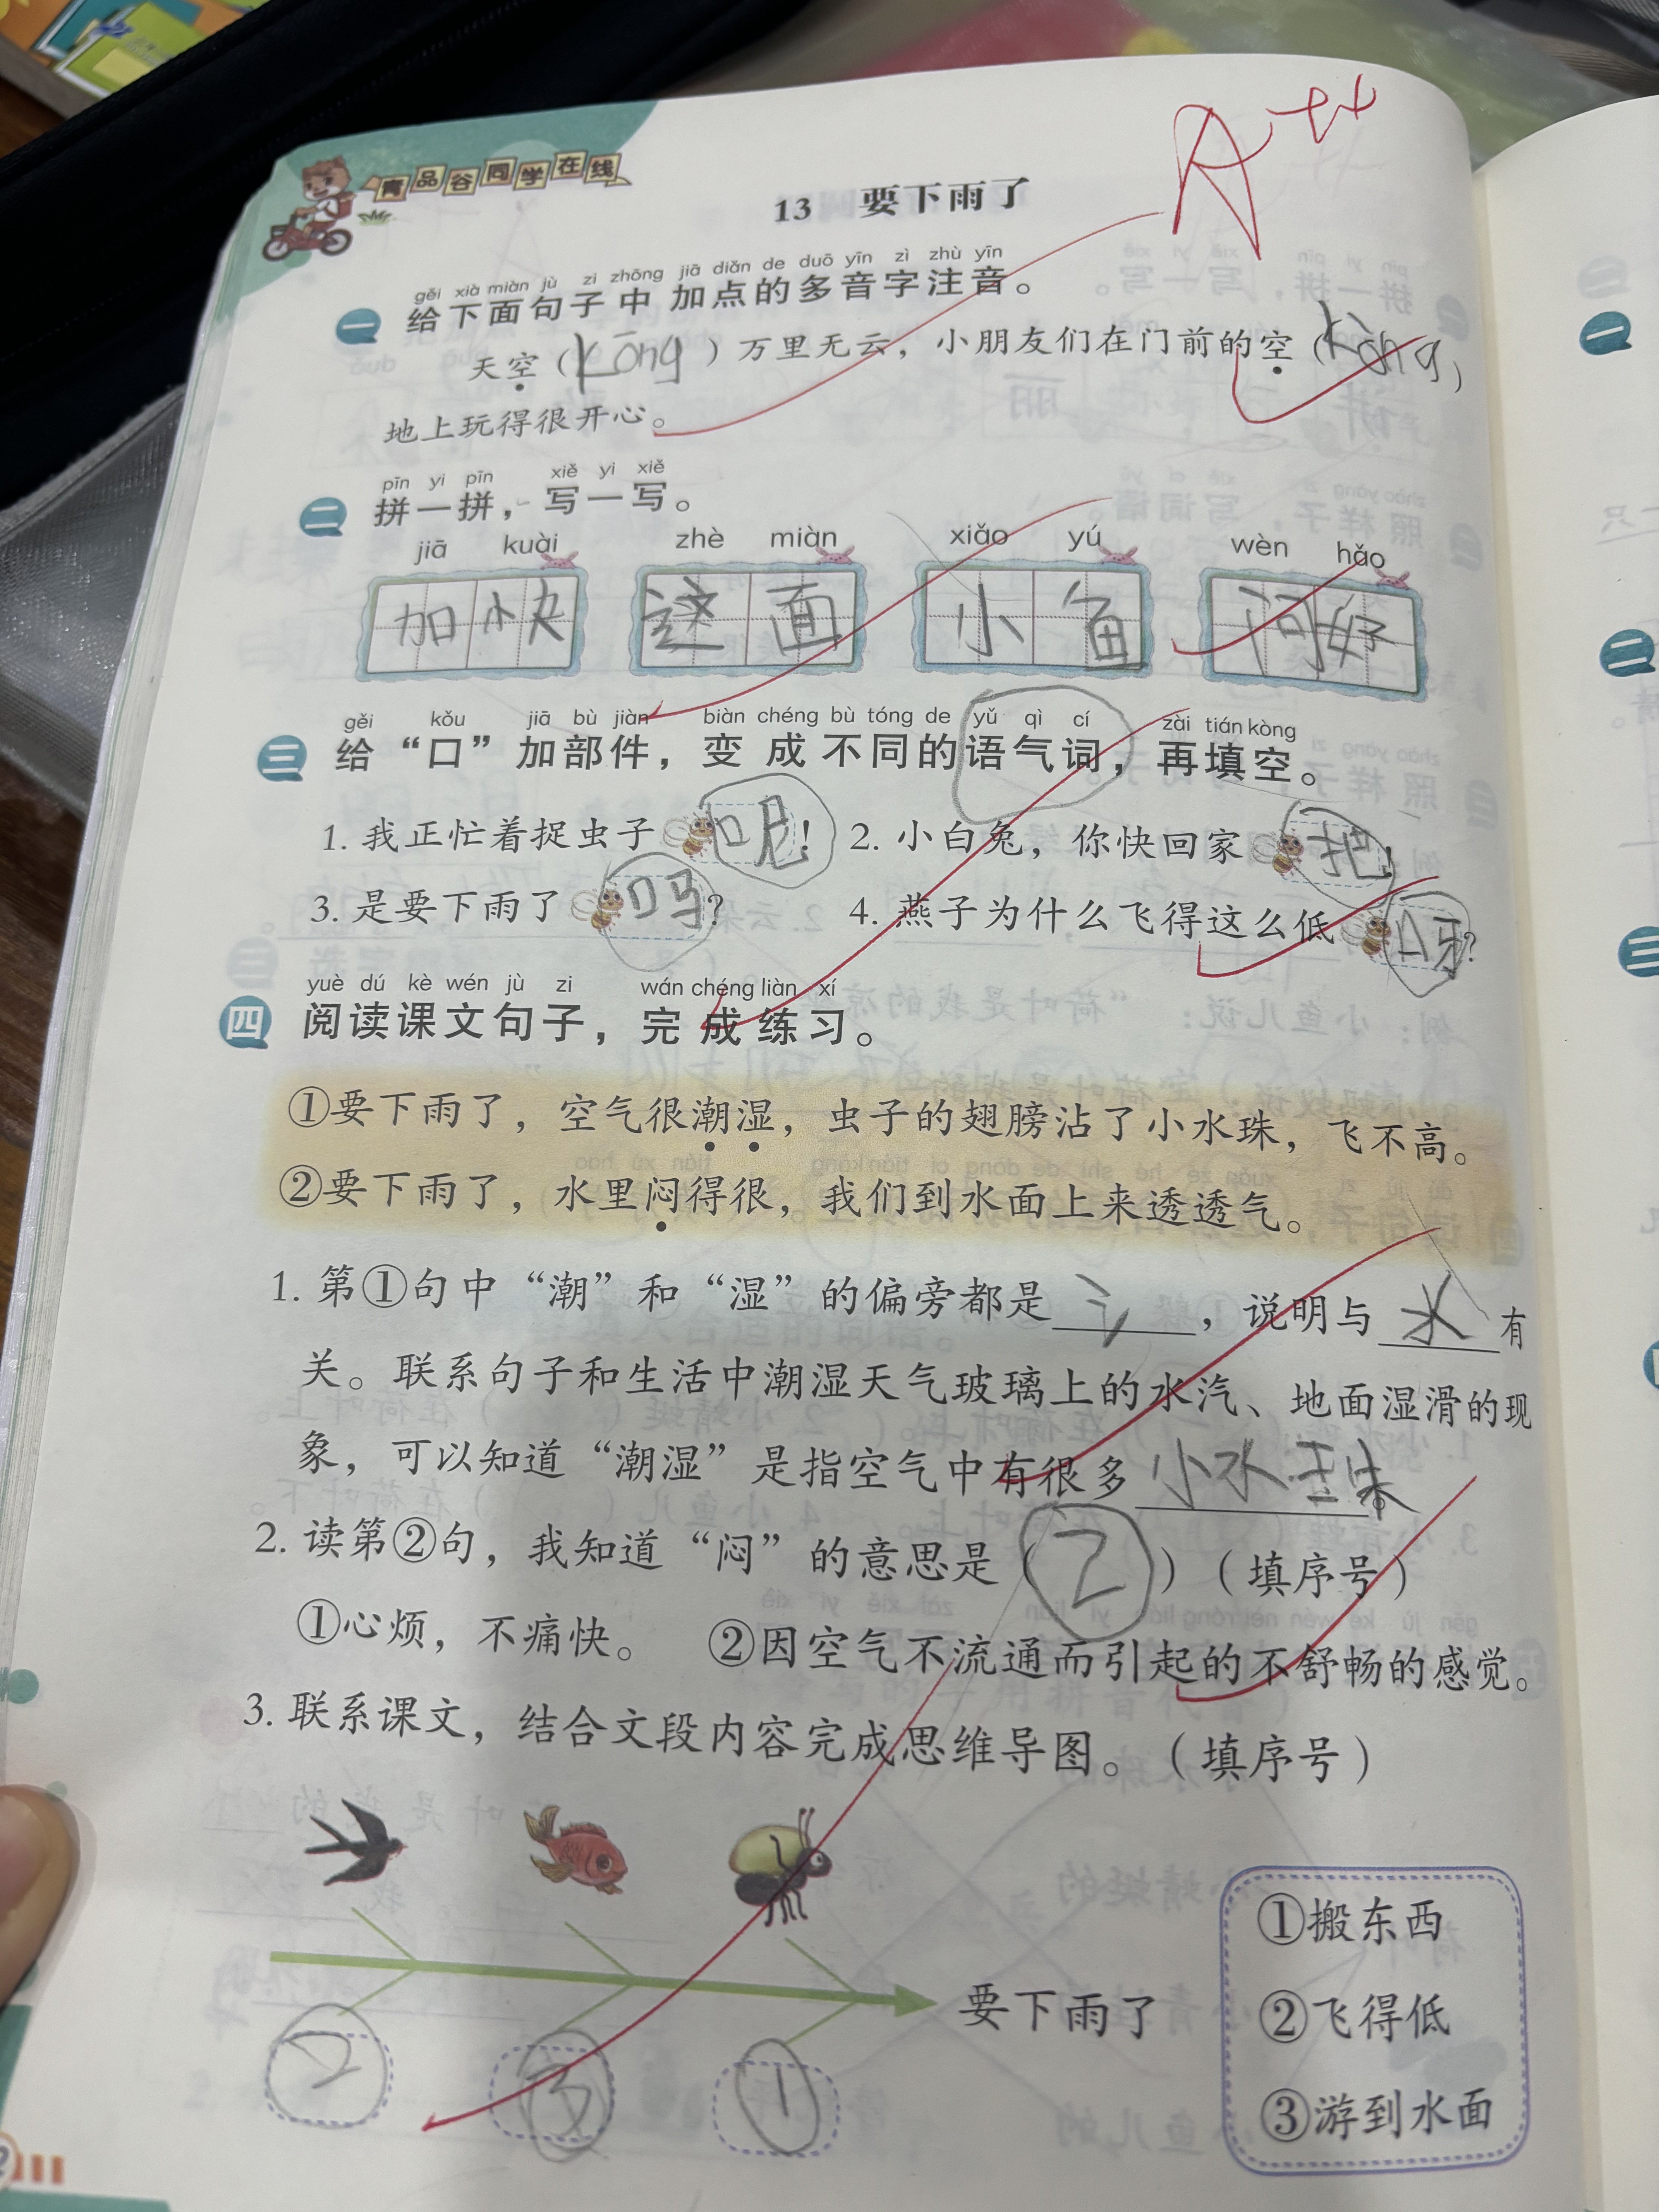 A++
青品谷同学在线
13 要下雨了
gěi xià miàn jù zi zhōng jiā diǎn de duō yīn zì zhù yīn
一 给下面句子中加点的多音字注音。
天空（kōng）万里无云，小朋友们在门前的空（kòng）
地上玩得很开心。
pīn yi pīn xiě yi xiě
二 拼一拼，写一写。
jiā kuài zhè miàn xiǎo yú wèn hǎo
加快 这面 小鱼 问好
gěi kǒu jiā bù jiàn biàn chéng bù tóng de yǔ qì cí zài tián kòng
三 给“口”加部件，变成不同的语气词，再填空。
1. 我正忙着捉虫子呢！ 2. 小白兔，你快回家吧！
3. 是要下雨了吗？ 4. 燕子为什么飞得这么低呀？
yuè dú kè wén jù zi wán chéng liàn xí
四 阅读课文句子，完成练习。
①要下雨了，空气很潮湿，虫子的翅膀沾了小水珠，飞不高。
②要下雨了，水里闷得很，我们到水面上来透透气。
1. 第①句中“潮”和“湿”的偏旁都是氵，说明与水有
关。联系句子和生活中潮湿天气玻璃上的水汽、地面湿滑的现
象，可以知道“潮湿”是指空气中有很多小水珠。
2. 读第②句，我知道“闷”的意思是（2）（填序号）
①心烦，不痛快。 ②因空气不流通而引起的不舒畅的感觉。
3. 联系课文，结合文段内容完成思维导图。（填序号）
要下雨了
2 3 1
①搬东西
②飞得低
③游到水面